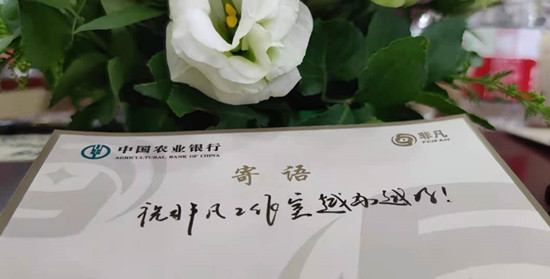 中国农业银行
AGRICULTURAL BANK OF CHINA
非凡
寄语
祝非凡工作室越办越好!